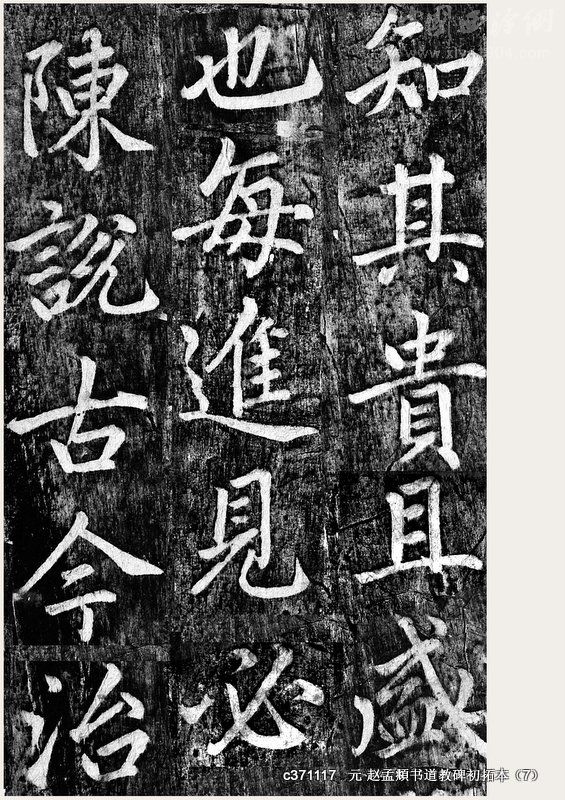 知其貴且盛
也每進見必
陳說古今治
c371117 元·赵孟頫书道教碑初拓本（7）